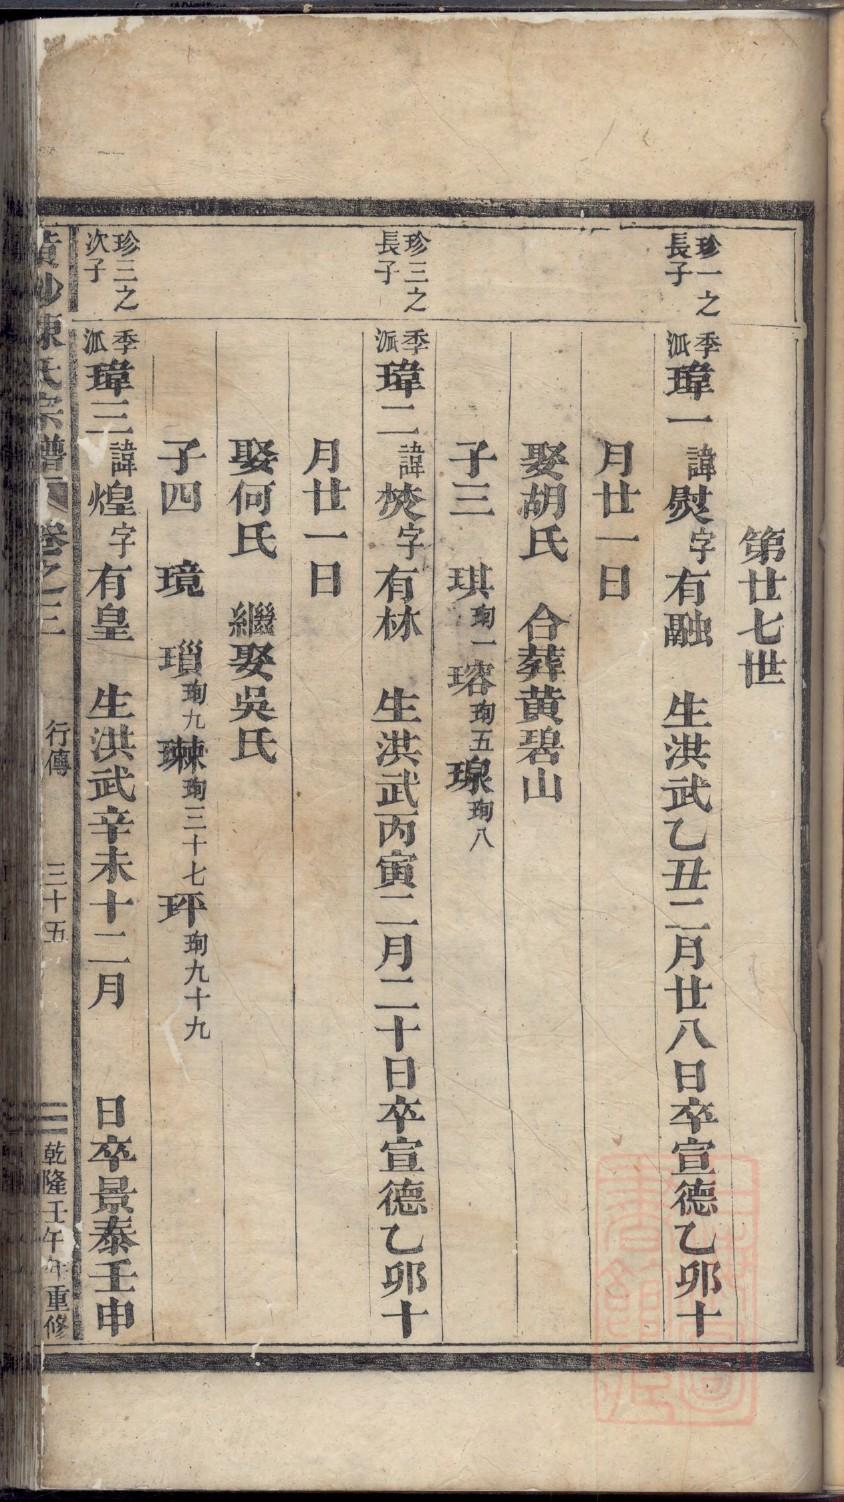 第廿七世
珍一之長子
季派瑋一諱熨字有融 生洪武乙丑二月廿八日卒宣德乙卯十
月廿一日
娶胡氏 合葬黃碧山
子三 琪珣一 瑢珣五 瑔珣八
珍三之長子
季派瑋二諱焚字有林 生洪武丙寅二月二十日卒宣德乙卯十
月廿一日
娶何氏 繼娶吳氏
子四 璄 瑣珣九 琜珣三十七 玶珣九十九
珍三之次子
季派瑋三諱煌字有皇 生洪武辛未十二月 日卒景泰壬申
陳氏宗譜 卷之三 行傳 三十五 乾隆壬午年重修